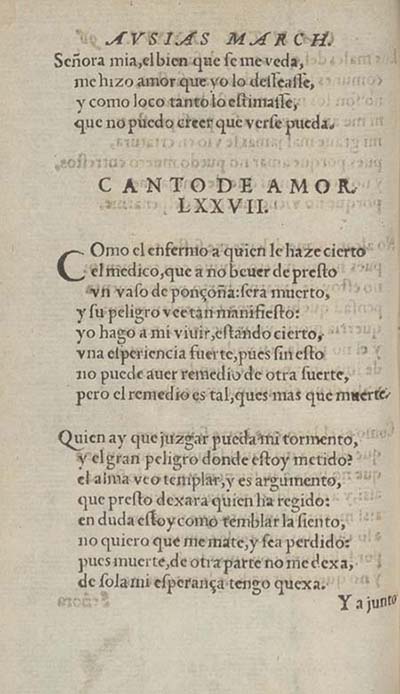 AVSIAS MARCH.
Señora mia, el bien que se me veda,
me hizo amor que yo lo desseasse,
y como loco tanto lo estimasse,
que no puedo creer que verse pueda.
CANTO DE AMOR.
LXXVII.
COmo el enfermo a quien le haze cierto
el medico, que a no beuer de presto
vn vaso de ponçoña: sera muerto,
y su peligro vee tan manifiesto:
yo hago a mi viuir, estando cierto,
vna esperiencia fuerte, pues sin esto
no puede auer remedio de otra suerte,
pero el remedio es tal, ques mas que muerte.
Quien ay que juzgar pueda mi tormento,
y el gran peligro donde estoy metido?
el alma veo templar, y es argumento,
que presto dexara quien ha regido:
en duda estoy como temblar la siento,
no quiero que me mate, y sea perdido:
pues muerte, de otra parte no me dexa,
de sola mi esperança tengo quexa.
Y a junto